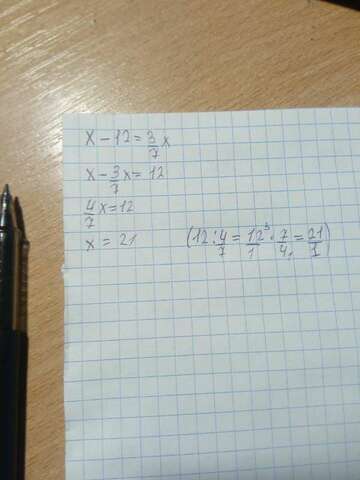 x - 12 = 3/7 x
x - 3/7 x = 12
4/7 x = 12
x = 21 (12 : 4/7 = 12³/1 · 7/4₁ = 21/1)